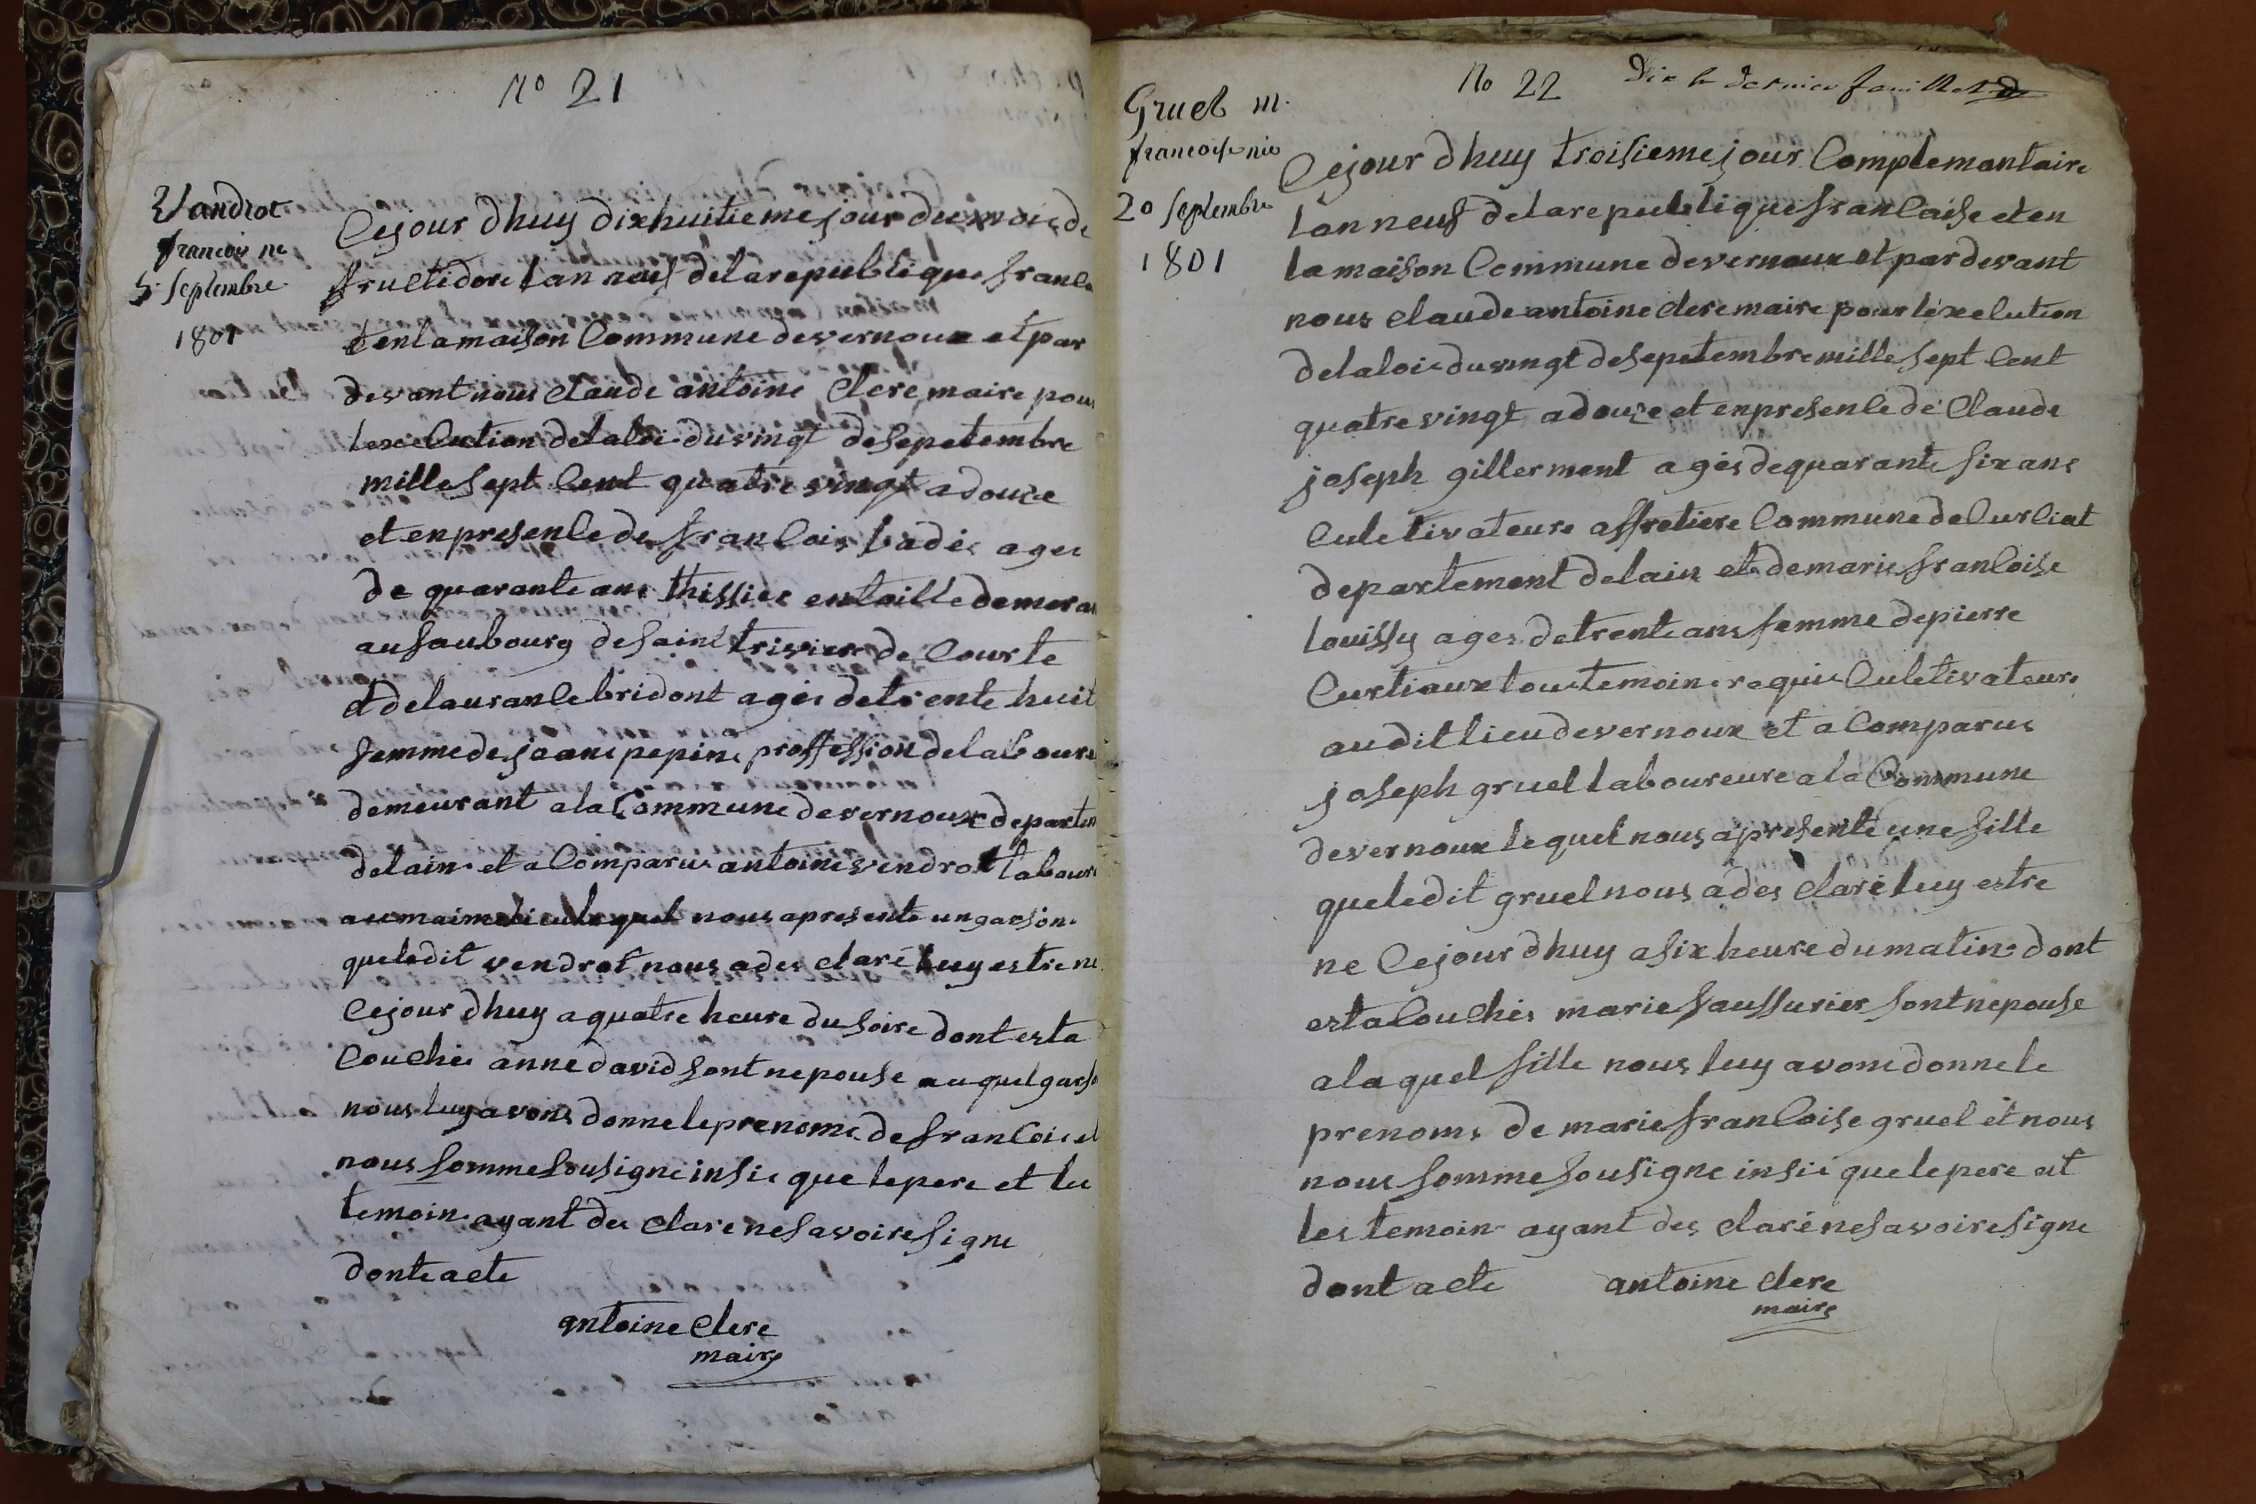 No 21
Vandrot
francois ne
5 Septembre
1801
Cejour dhuy dixhuitieme jour du mois de
fructidore lan neuf delarepublique franca
et enlamaison Commune devernoux et par
devant nous claude antoine clere maire pour
lexecution delaloi duvingt desepetembre
mille sept Cent quatre vingt adouze
et enpresencede francois badés agés
de quarante ans thissier entoille demeran
aufaubourg desaint trivier de Courte
et delaurance bridont agés detrente huit
femmede jeane pepine proffession delaboure
demeurant ala Commune devernoux departem
delain et a Comparus antoine vendrot laboure
aumaime lieu lequel nous apresente ungarson
queledit vendrot nous ades claré luy estre ne
Cejour dhuy aquatre heure dusoire dont esta
Couchée anne david sont nepouse auquel garso
nous luy avons donne leprenoms de francois et
nous somme sousigne insie que lepere et les
temoin ayant des clare nesavoire signe
dont acte
antoine clere
maire
No 22
Dix le dernier feuillet
Gruel m.
francoise née
20 Septembre
1801
Cejour dhuy troisieme jour Complemantaire
lan neuf delarepublique francaise et en
lamaison Commune devernoux et pardevant
nous claude antoine clere maire pour léxecution
delaloi duvingt desepetembre mille sept Cent
quatre vingt adouze et enpresence de Claude
joseph gillermont agés dequarante six ans
Culetivateure affretiere Commune deCurciat
departement delain et demarie francoise
louissy agés detrente ans femme depierre
Curtiaux tous temoin requis Culetivateure
audit lieu devernoux et a Comparus
joseph gruel laboureure ala Commune
devernoux lequel nous apresente une fille
queledit gruel nous ades claré luy estre
ne Cejour dhuy asix heure dumatin dont
esta Couchés marie faussurier sont nepouse
alaquel fille nous luy avons donnele
prenoms de marie francoise gruel et nous
nous somme sousigne insié quelepere et
les temoin ayant des claré nesavoire signe
dont acte
antoine clere
maire